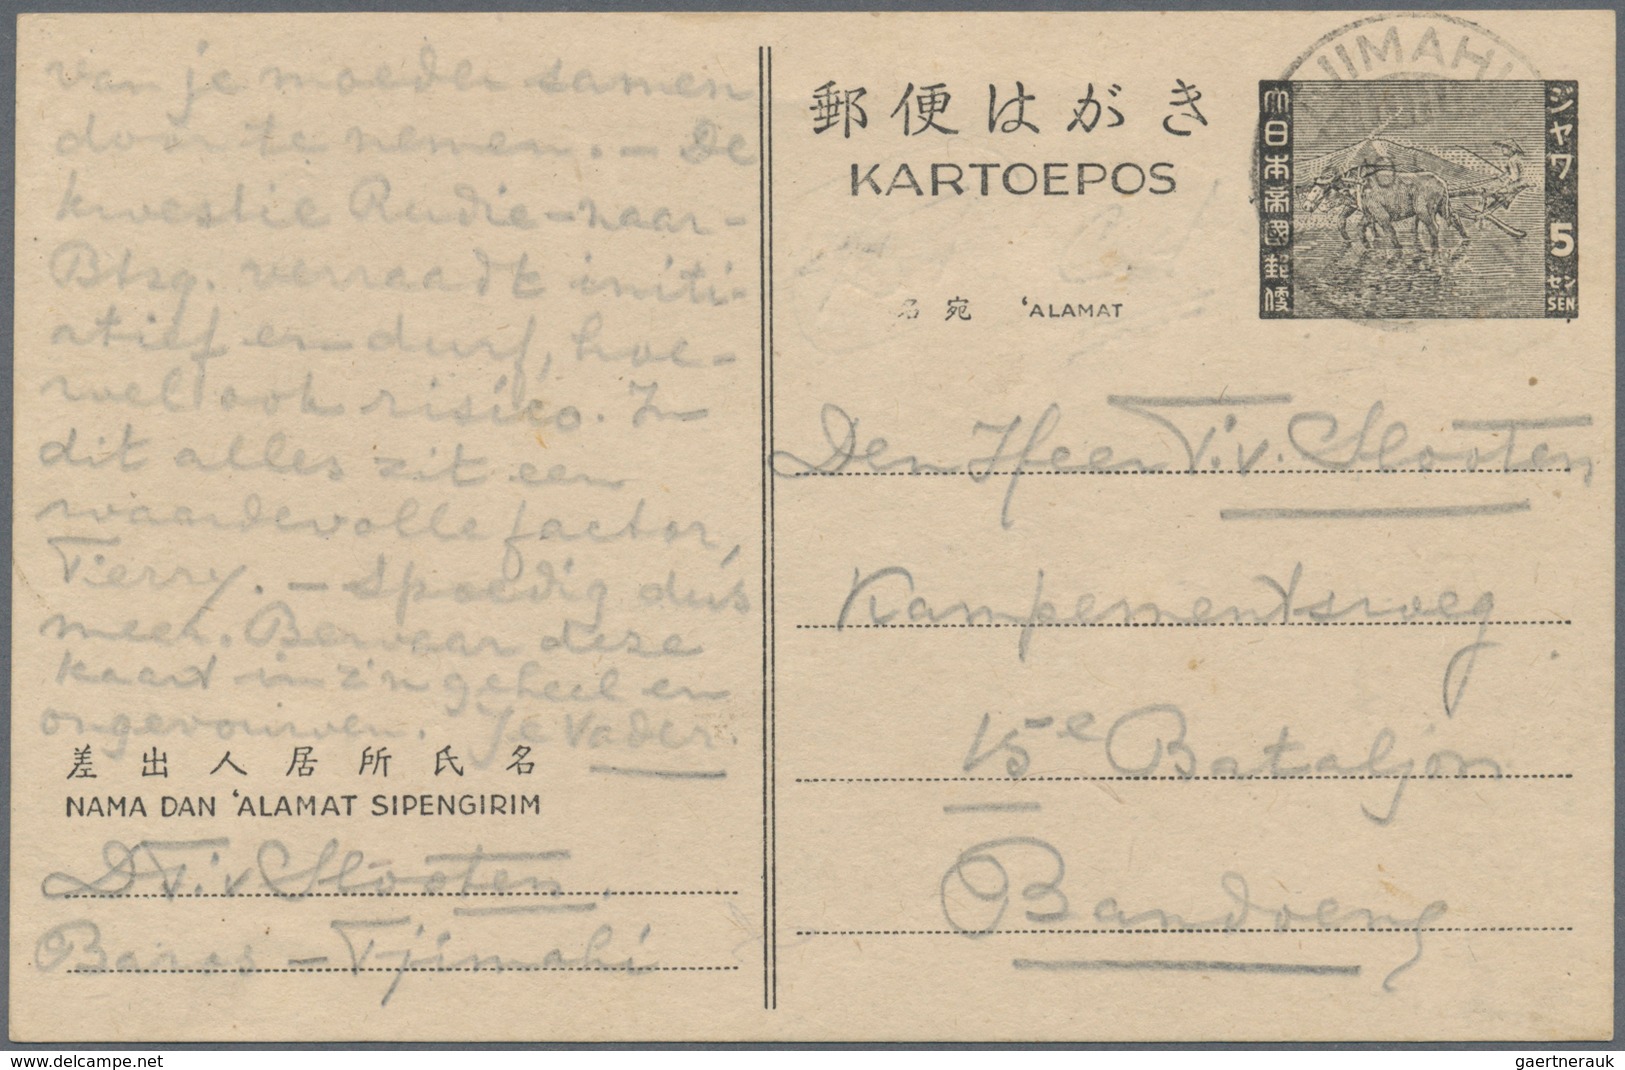 van je moeder samen
door te nemen. — De
kwestie Rudie-naar-
Btsg. verraadt initi-
atief en durf, hoe-
wel ook risico. In
dit alles zit een
waardevolle factor,
Tierry. — Spoedig dus
meer. Bewaar deze
kaart in z'n geheel en
ongevouwen. Je Vader.
差出人居所氏名
NAMA DAN ‘ALAMAT SIPENGIRIM
D T. v Slooten.
Baros — Tjimahi
郵便はがき
KARTOEPOS
名宛 ‘ALAMAT
JIMAHI
大日本帝國郵便
ジャワ 5 セン SEN
Den Heer T. v. Slooten
Kampementsweg
15e Bataljon
Bandoeng
www.delcampe.net
gaertnerauk